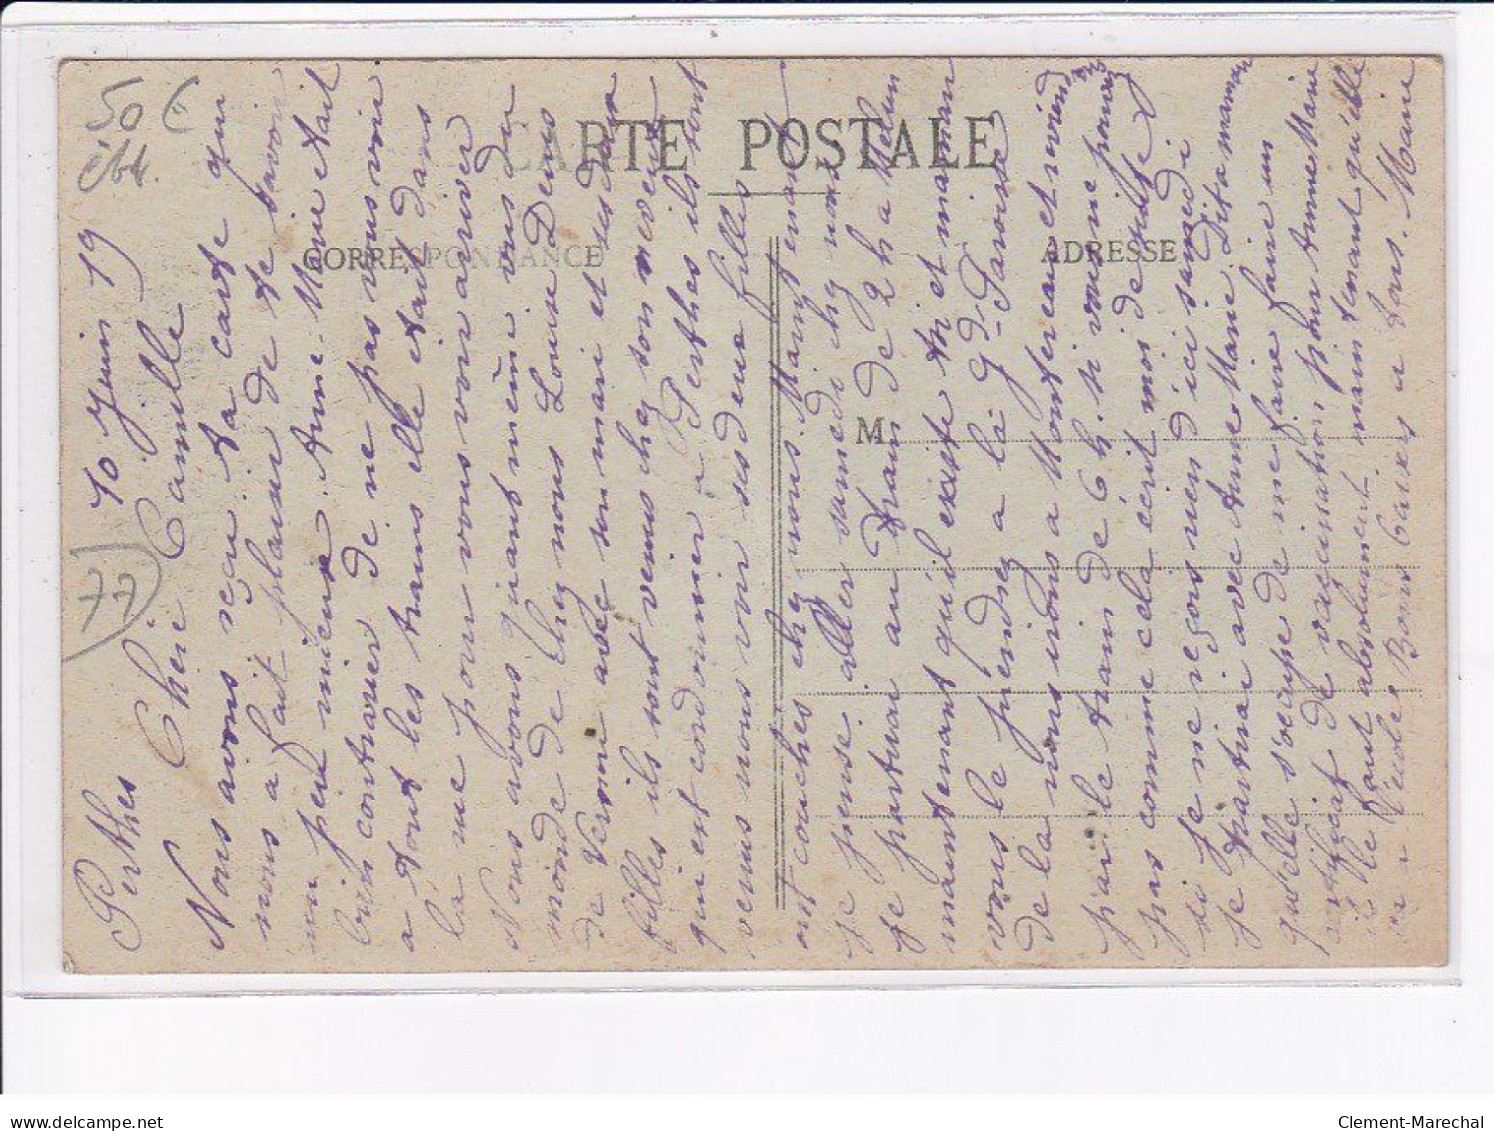 50 €
ébk.
77
CARTE POSTALE
CORRESPONDANCE
ADRESSE
M
Perthes 10 Juin 19
Chère Camille
Nous avons reçu ta carte qui
nous a fait plaisir de te savoir
un peu mieux. Anne-Marie était
bien contrarier de ne pas vous voir
a tout les trains elle était dans
la rue pour vous voir arriver
Nous avons quant même vus du
monde de chez nous Louise Denis
de Verme avec son mari et ses deux
filles ils sont venus chez son neveux
qui est cordonnier a Perthes ils sont
venus nous voir ses deux filles
ont couchées chez nous. Maintenant
je pense aller samedi chez nous
je partirai au train de 2 h a Melun
maintenant qu'il existe toi et maman
vous le prendrez a la gd-Paroisse
de la nous irons a Montereau et reviend
par le train de 6 h. si vous ne pouvez
pas comme cela écrit moi de suite
si je ne reçois rien d'ici samedi
je partirai avec Anne Marie. Dit a maman
qu'elle s'occupe de me faire faire un
certificat de vaccination pour Anne Marie
il le faut absolument maintenant qu'elle
va a l'école Bons baisers a tous. Marie
Clement-Marechal